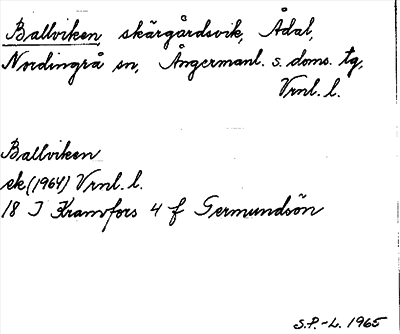 Ballviken, skärgårdsvik, Ådal,
Nordingrå sn, Ångermanl. s. doms. tg,
Vrnl. l.
Ballviken
ek (1964) Vrnl. l.
18 I Kramfors 4 f Germundsön
S.P.-L. 1965